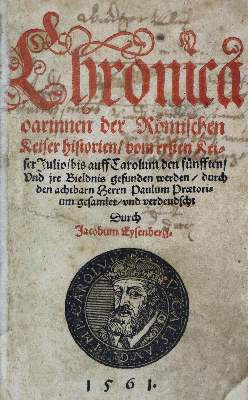 Chronica
darinnen der Römischen
Keiser historien / vom ersten Kei-
ser Julio / bis auff Carolum den fünfften /
Vnd jre Bieldnis gefunden werden / durch
den achtbarn Herrn Paulum Prætori-
um gesamlet / vnd verdeudscht
Durch
Jacobum Eysenberg.
CAROLVS
1561.